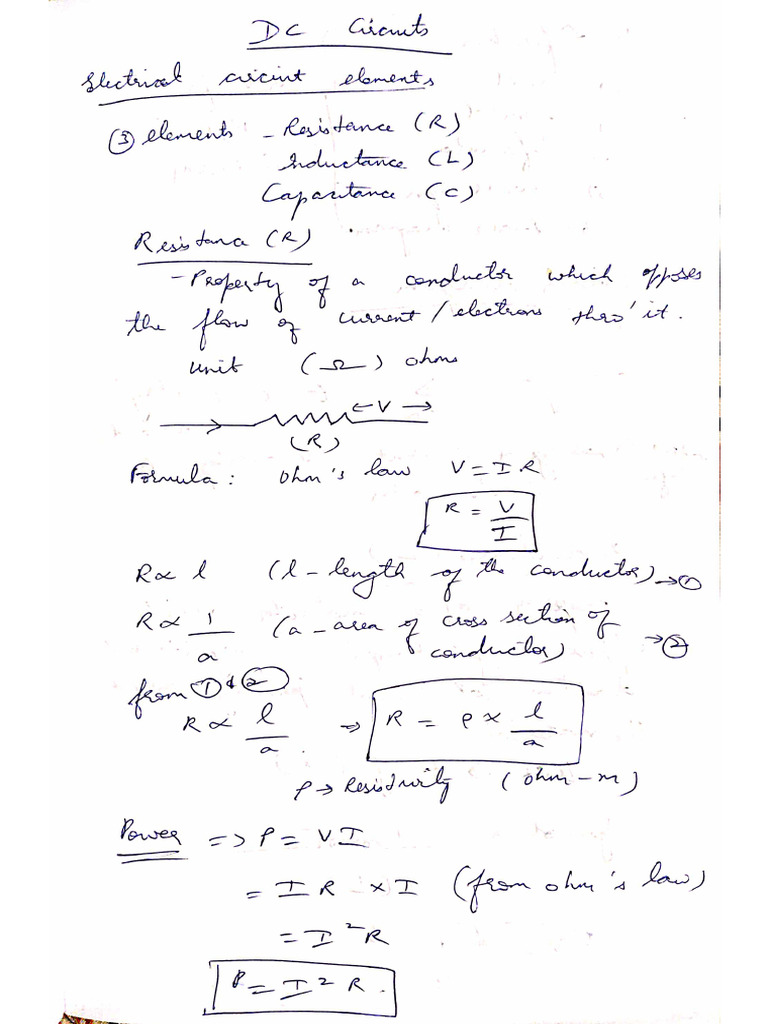 DC Circuits
Electrical circuit elements
③ elements - Resistance (R)
Inductance (L)
Capacitance (C)
Resistance (R)
- Property of a conductor which opposes
the flow of current / electrons thro' it.
unit (Ω) ohms
← V →
(R)
Formula: Ohm's law V = IR
R = V/I
R ∝ l (l - length of the conductor) → ①
R ∝ 1/a (a - area of cross section of
conductor) → ②
from ① & ②
R ∝ l/a ⇒ R = ρ × l/a
ρ → Resistivity (ohm - m)
Power ⇒ P = VI
= IR × I (from ohm's law)
= I²R
P = I²R.